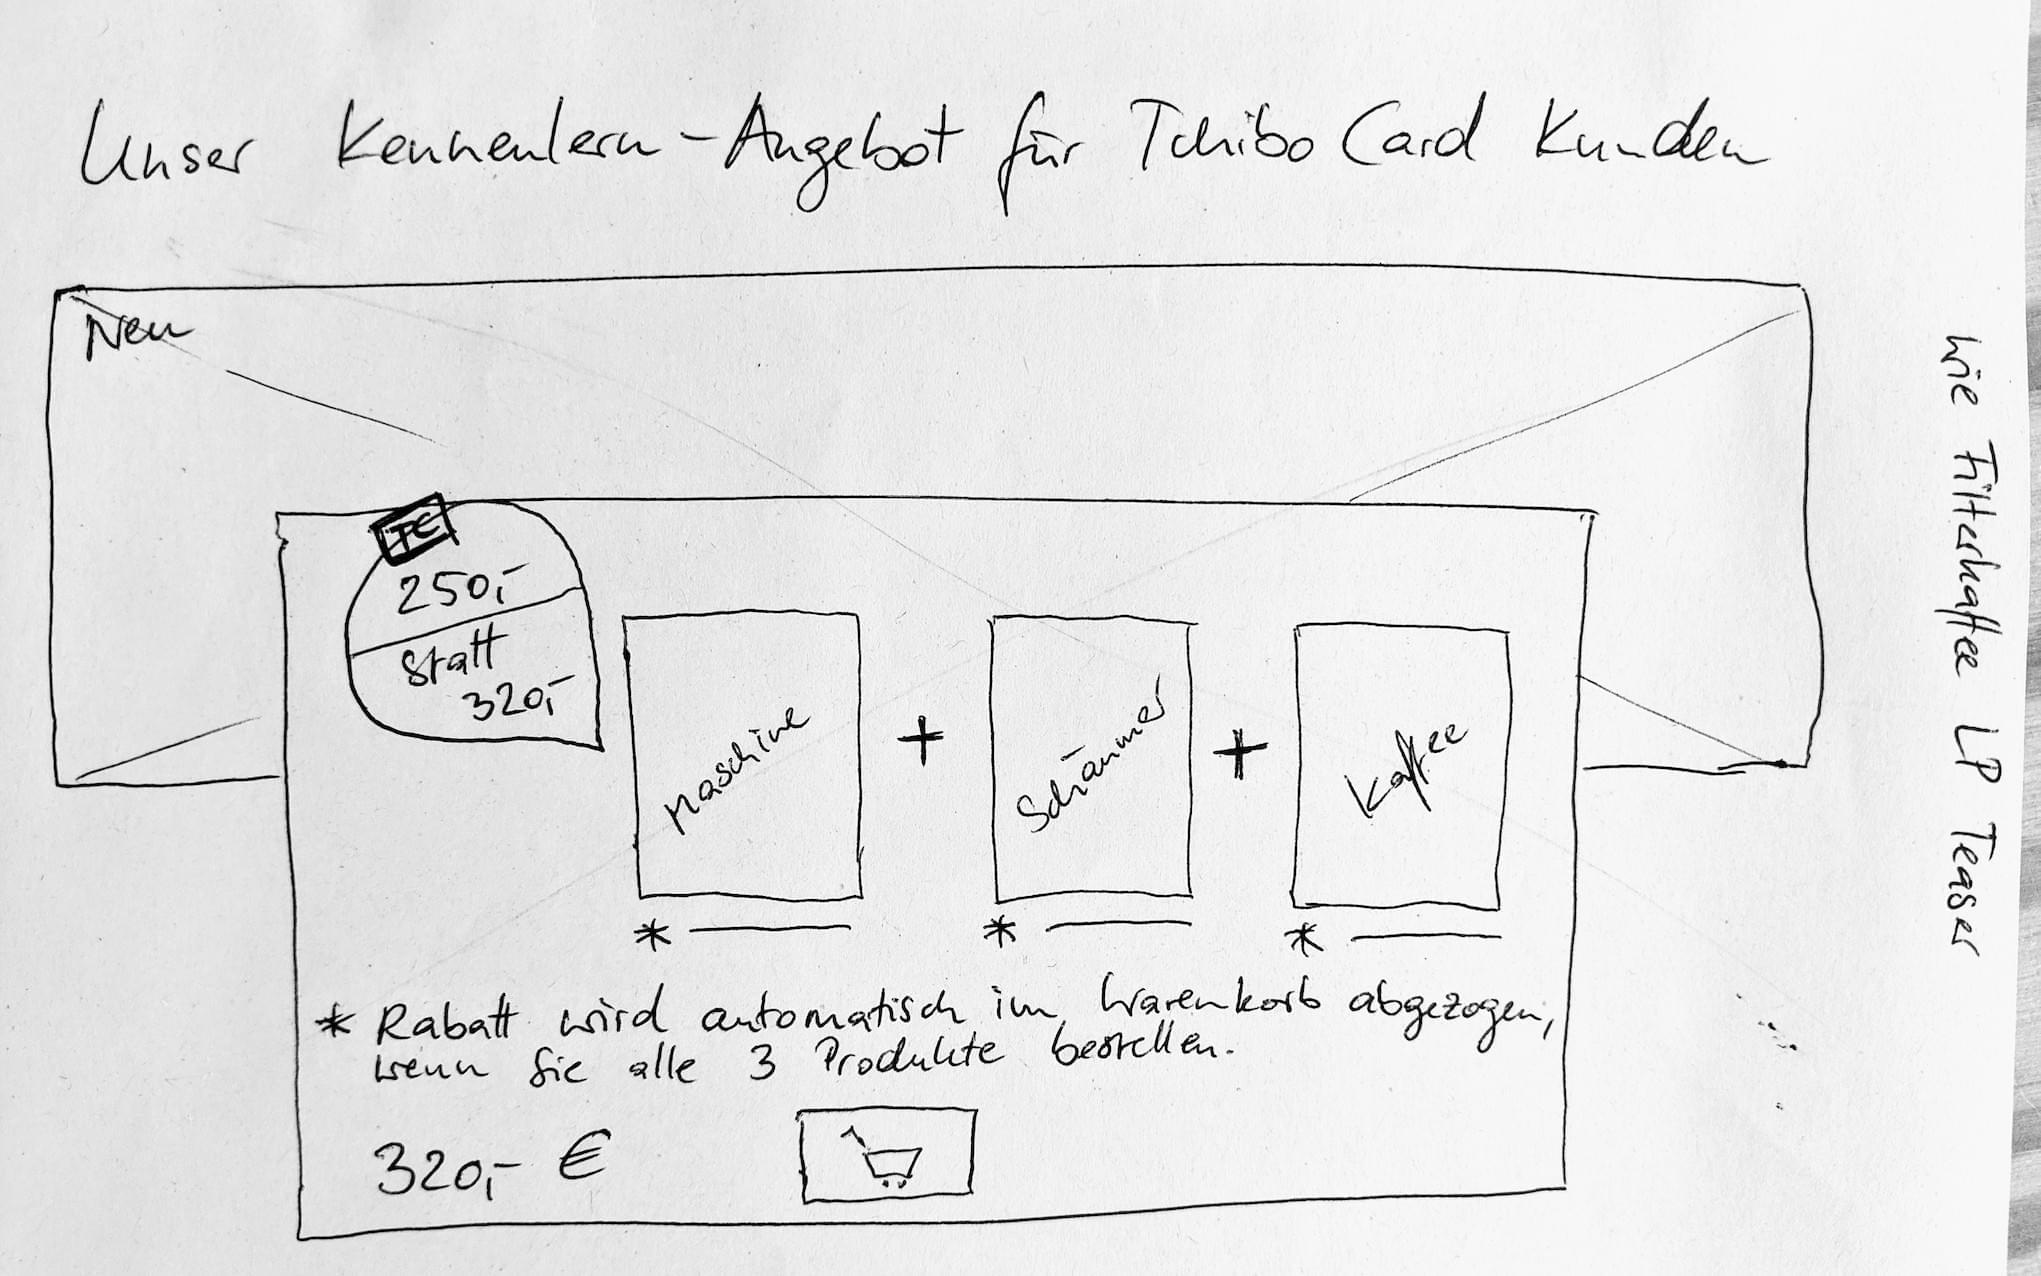 Unser Kennenlern-Angebot für Tchibo Card Kunden
Neu
TC
250,-
statt
320,-
Maschine
+
Schäumer
+
Kaffee
*
*
*
* Rabatt wird automatisch im Warenkorb abgezogen,
wenn Sie alle 3 Produkte bestellen.
320,- €
wie Filterkaffee LP Teaser